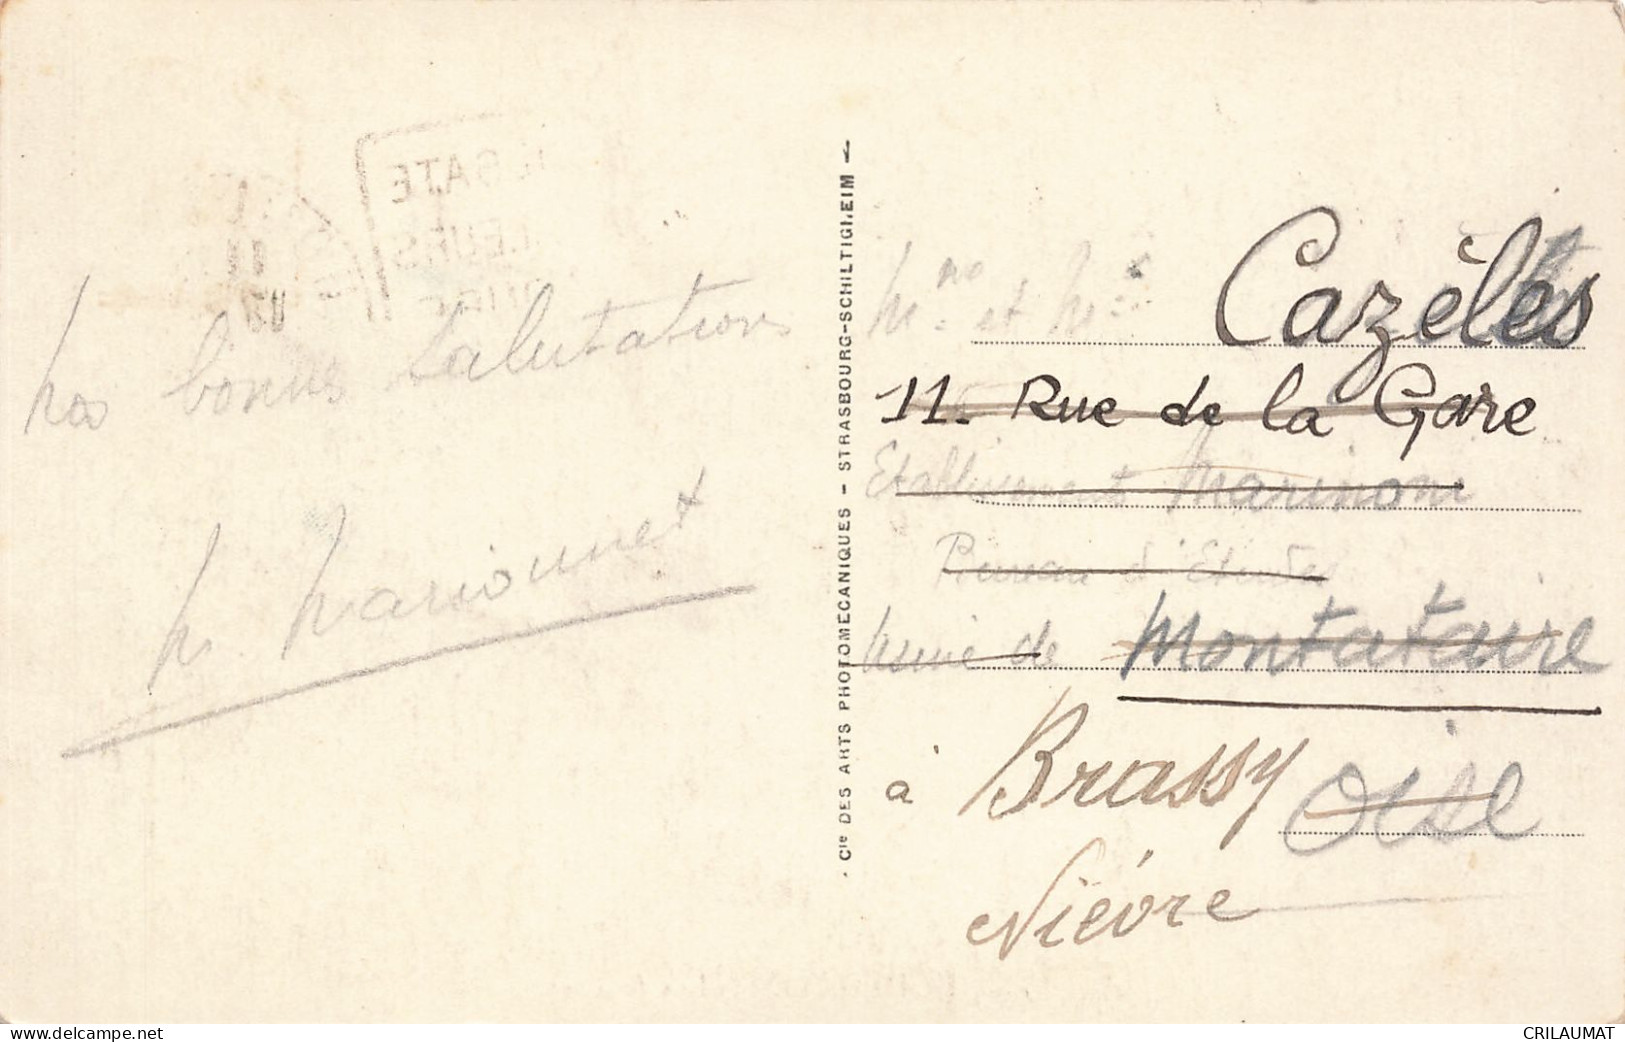 nos bonnes salutations
M. Marionnet
. Cie DES ARTS PHOTOMECANIQUES - STRASBOURG-SCHILTIGHEIM
et Cazélès
11. Rue de la Gare
Etablissement Marinoni
Bureau d'Etudes
Usine de Montataire
à Brassy Oise
Nièvre
www.delcampe.net
CRILAUMAT